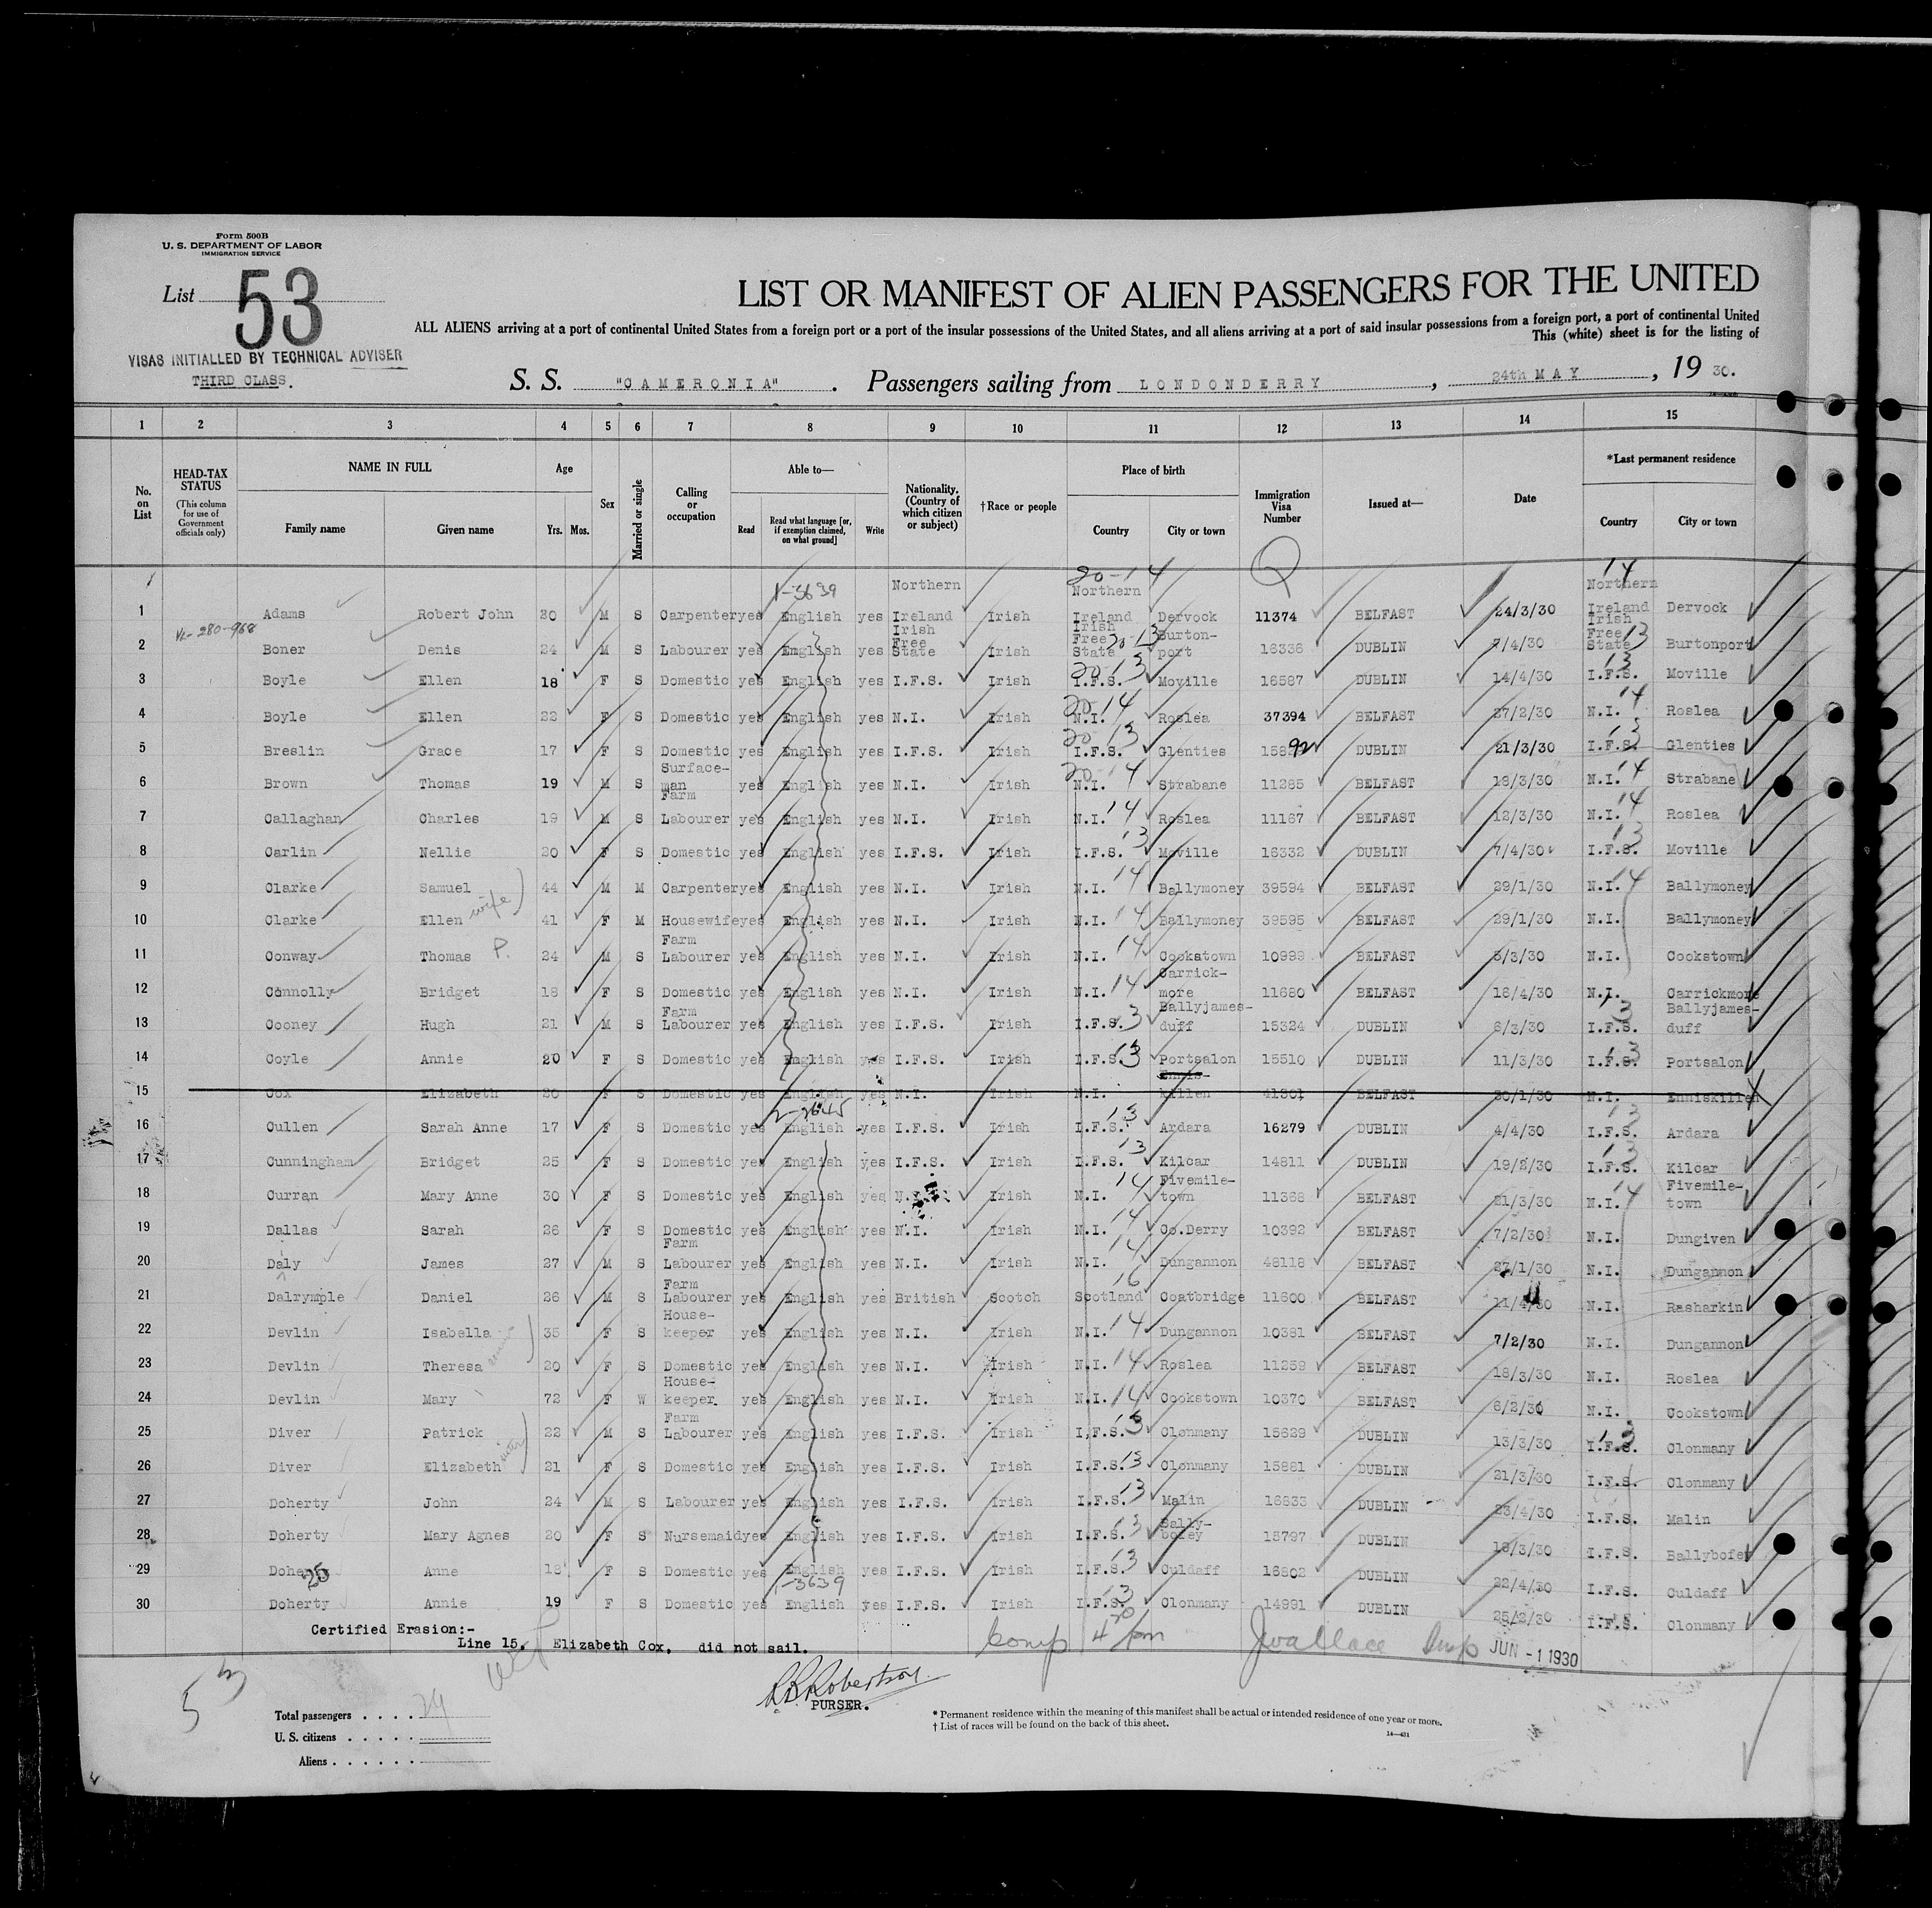 Form 500B
U. S. DEPARTMENT OF LABOR
IMMIGRATION SERVICE
List 53
VISAS INITIALLED BY TECHNICAL ADVISER
THIRD CLASS.
LIST OR MANIFEST OF ALIEN PASSENGERS FOR THE UNITED
ALL ALIENS arriving at a port of continental United States from a foreign port or a port of the insular possessions of the United States, and all aliens arriving at a port of said insular possessions from a foreign port, a port of continental United
This (white) sheet is for the listing of
S. S. "CAMERONIA". Passengers sailing from LONDONDERRY, 24th MAY, 19 30.
1 2 3 4 5 6 7 8 9 10 11 12 13 14 15
No. on List
HEAD-TAX STATUS (This column for use of Government officials only)
NAME IN FULL Family name Given name
Age Yrs. Mos.
Sex
Married or single
Calling or occupation
Able to— Read Read what language [or, if exemption claimed, on what ground] Write
Nationality. (Country of which citizen or subject)
†Race or people
Place of birth Country City or town
Immigration Visa Number
Issued at—
Date
*Last permanent residence Country City or town
1-3639 20-14 14
1 Adams Robert John 30 M S Carpenter yes English yes Northern Ireland Irish Northern Ireland Dervock 11374 BELFAST 24/3/30 Northern Ireland Dervock
2 Boner Denis 24 M S Labourer yes English yes Irish Free State Irish Irish Free State 20-13 Burton-port 16336 DUBLIN 7/4/30 Irish Free State 13 Burtonport
3 Boyle Ellen 18 F S Domestic yes English yes I.F.S. Irish I.F.S. 20-13 Moville 16587 DUBLIN 14/4/30 I.F.S. 13 Moville
4 Boyle Ellen 22 F S Domestic yes English yes N.I. Irish N.I. 20-14 Roslea 37394 BELFAST 27/2/30 N.I. 14 Roslea
5 Breslin Grace 17 F S Domestic yes English yes I.F.S. Irish I.F.S. 20-13 Glenties 15892 DUBLIN 21/3/30 I.F.S. 13 Glenties
6 Brown Thomas 19 M S Surface-man yes English yes N.I. Irish N.I. 20-14 Strabane 11285 BELFAST 18/3/30 N.I. 14 Strabane
7 Callaghan Charles 19 M S Farm Labourer yes English yes N.I. Irish N.I. 14 Roslea 11167 BELFAST 12/3/30 N.I. 14 Roslea
8 Carlin Nellie 20 F S Domestic yes English yes I.F.S. Irish I.F.S. 13 Moville 16332 DUBLIN 7/4/30 I.F.S. 13 Moville
9 Clarke Samuel 44 M M Carpenter yes English yes N.I. Irish N.I. 14 Ballymoney 39594 BELFAST 29/1/30 N.I. 14 Ballymoney
10 Clarke Ellen wife 41 F M Housewife yes English yes N.I. Irish N.I. 14 Ballymoney 39595 BELFAST 29/1/30 N.I. Ballymoney
11 Conway Thomas P. 24 M S Farm Labourer yes English yes N.I. Irish N.I. 14 Cookstown 10999 BELFAST 5/3/30 N.I. Cookstown
12 Connolly Bridget 18 F S Domestic yes English yes N.I. Irish N.I. 14 Carrick-more 11680 BELFAST 16/4/30 N.I. Carrickmore
13 Cooney Hugh 21 M S Farm Labourer yes English yes I.F.S. Irish I.F.S. 13 Ballyjames-duff 15324 DUBLIN 6/3/30 I.F.S. 13 Ballyjames-duff
14 Coyle Annie 20 F S Domestic yes English yes I.F.S. Irish I.F.S. 13 Portsalon 15510 DUBLIN 11/3/30 I.F.S. 13 Portsalon
15 Cox Elizabeth 20 F S Domestic yes English yes N.I. Irish N.I. Ennis-killen 41301 BELFAST 30/1/30 N.I. Enniskillen
16 Cullen Sarah Anne 17 F S Domestic yes English yes I.F.S. Irish I.F.S. 13 Ardara 16279 DUBLIN 4/4/30 I.F.S. 13 Ardara
17 Cunningham Bridget 25 F S Domestic yes English yes I.F.S. Irish I.F.S. 13 Kilcar 14811 DUBLIN 19/2/30 I.F.S. 13 Kilcar
18 Curran Mary Anne 30 F S Domestic yes English yes Irish N.I. 14 Fivemile-town 11368 BELFAST 21/3/30 N.I. 14 Fivemile-town
19 Dallas Sarah 26 F S Domestic yes English yes N.I. Irish N.I. 14 Co.Derry 10392 BELFAST 7/2/30 N.I. Dungiven
20 Daly James 27 M S Farm Labourer yes English yes N.I. Irish N.I. 14 Dungannon 48118 BELFAST 27/1/30 N.I. Dungannon
21 Dalrymple Daniel 26 M S Farm Labourer yes English yes British Scotch Scotland 16 Coatbridge 11600 BELFAST 11/4/30 N.I. Rasharkin
22 Devlin Isabella 35 F S House-keeper yes English yes N.I. Irish N.I. 14 Dungannon 10381 BELFAST 7/2/30 N.I. Dungannon
23 Devlin Theresa 20 F S Domestic yes English yes N.I. Irish N.I. 14 Roslea 11259 BELFAST 18/3/30 N.I. Roslea
24 Devlin Mary 72 F W House-keeper yes English yes N.I. Irish N.I. 14 Cookstown 10370 BELFAST 6/2/30 N.I. Cookstown
25 Diver Patrick 22 M S Farm Labourer yes English yes I.F.S. Irish I.F.S. 13 Clonmany 15629 DUBLIN 13/3/30 I.F.S. 13 Clonmany
26 Diver Elizabeth sister 21 F S Domestic yes English yes I.F.S. Irish I.F.S. 13 Clonmany 15881 DUBLIN 21/3/30 I.F.S. Clonmany
27 Doherty John 24 M S Labourer yes English yes I.F.S. Irish I.F.S. 13 Malin 16833 DUBLIN 23/4/30 I.F.S. Malin
28 Doherty Mary Agnes 20 F S Nursemaid yes English yes I.F.S. Irish I.F.S. 13 Bally-bofey 15797 DUBLIN 18/3/30 I.F.S. Ballybofey
29 Doherty Anne 18 F S Domestic yes English yes I.F.S. Irish I.F.S. 13 Culdaff 16802 DUBLIN 22/4/30 I.F.S. Culdaff
30 Doherty Annie 19 F S Domestic yes English yes I.F.S. Irish I.F.S. 13 Clonmany 14991 DUBLIN 25/2/30 I.F.S. Clonmany
Certified Erasion:-
Line 15. Elizabeth Cox, did not sail.
JWallace Insp JUN -1 1930
53
PURSER.
Total passengers . . . . 29
U. S. citizens . . . . .
Aliens . . . . . .
* Permanent residence within the meaning of this manifest shall be actual or intended residence of one year or more.
† List of races will be found on the back of this sheet.
14—431